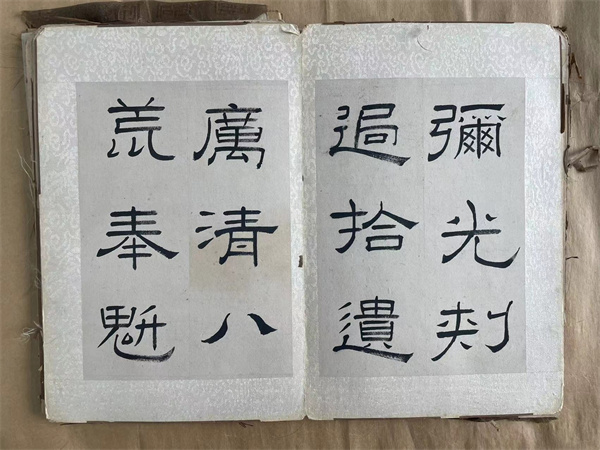 彌光刺
過拾遺
厲清八
荒奉魁